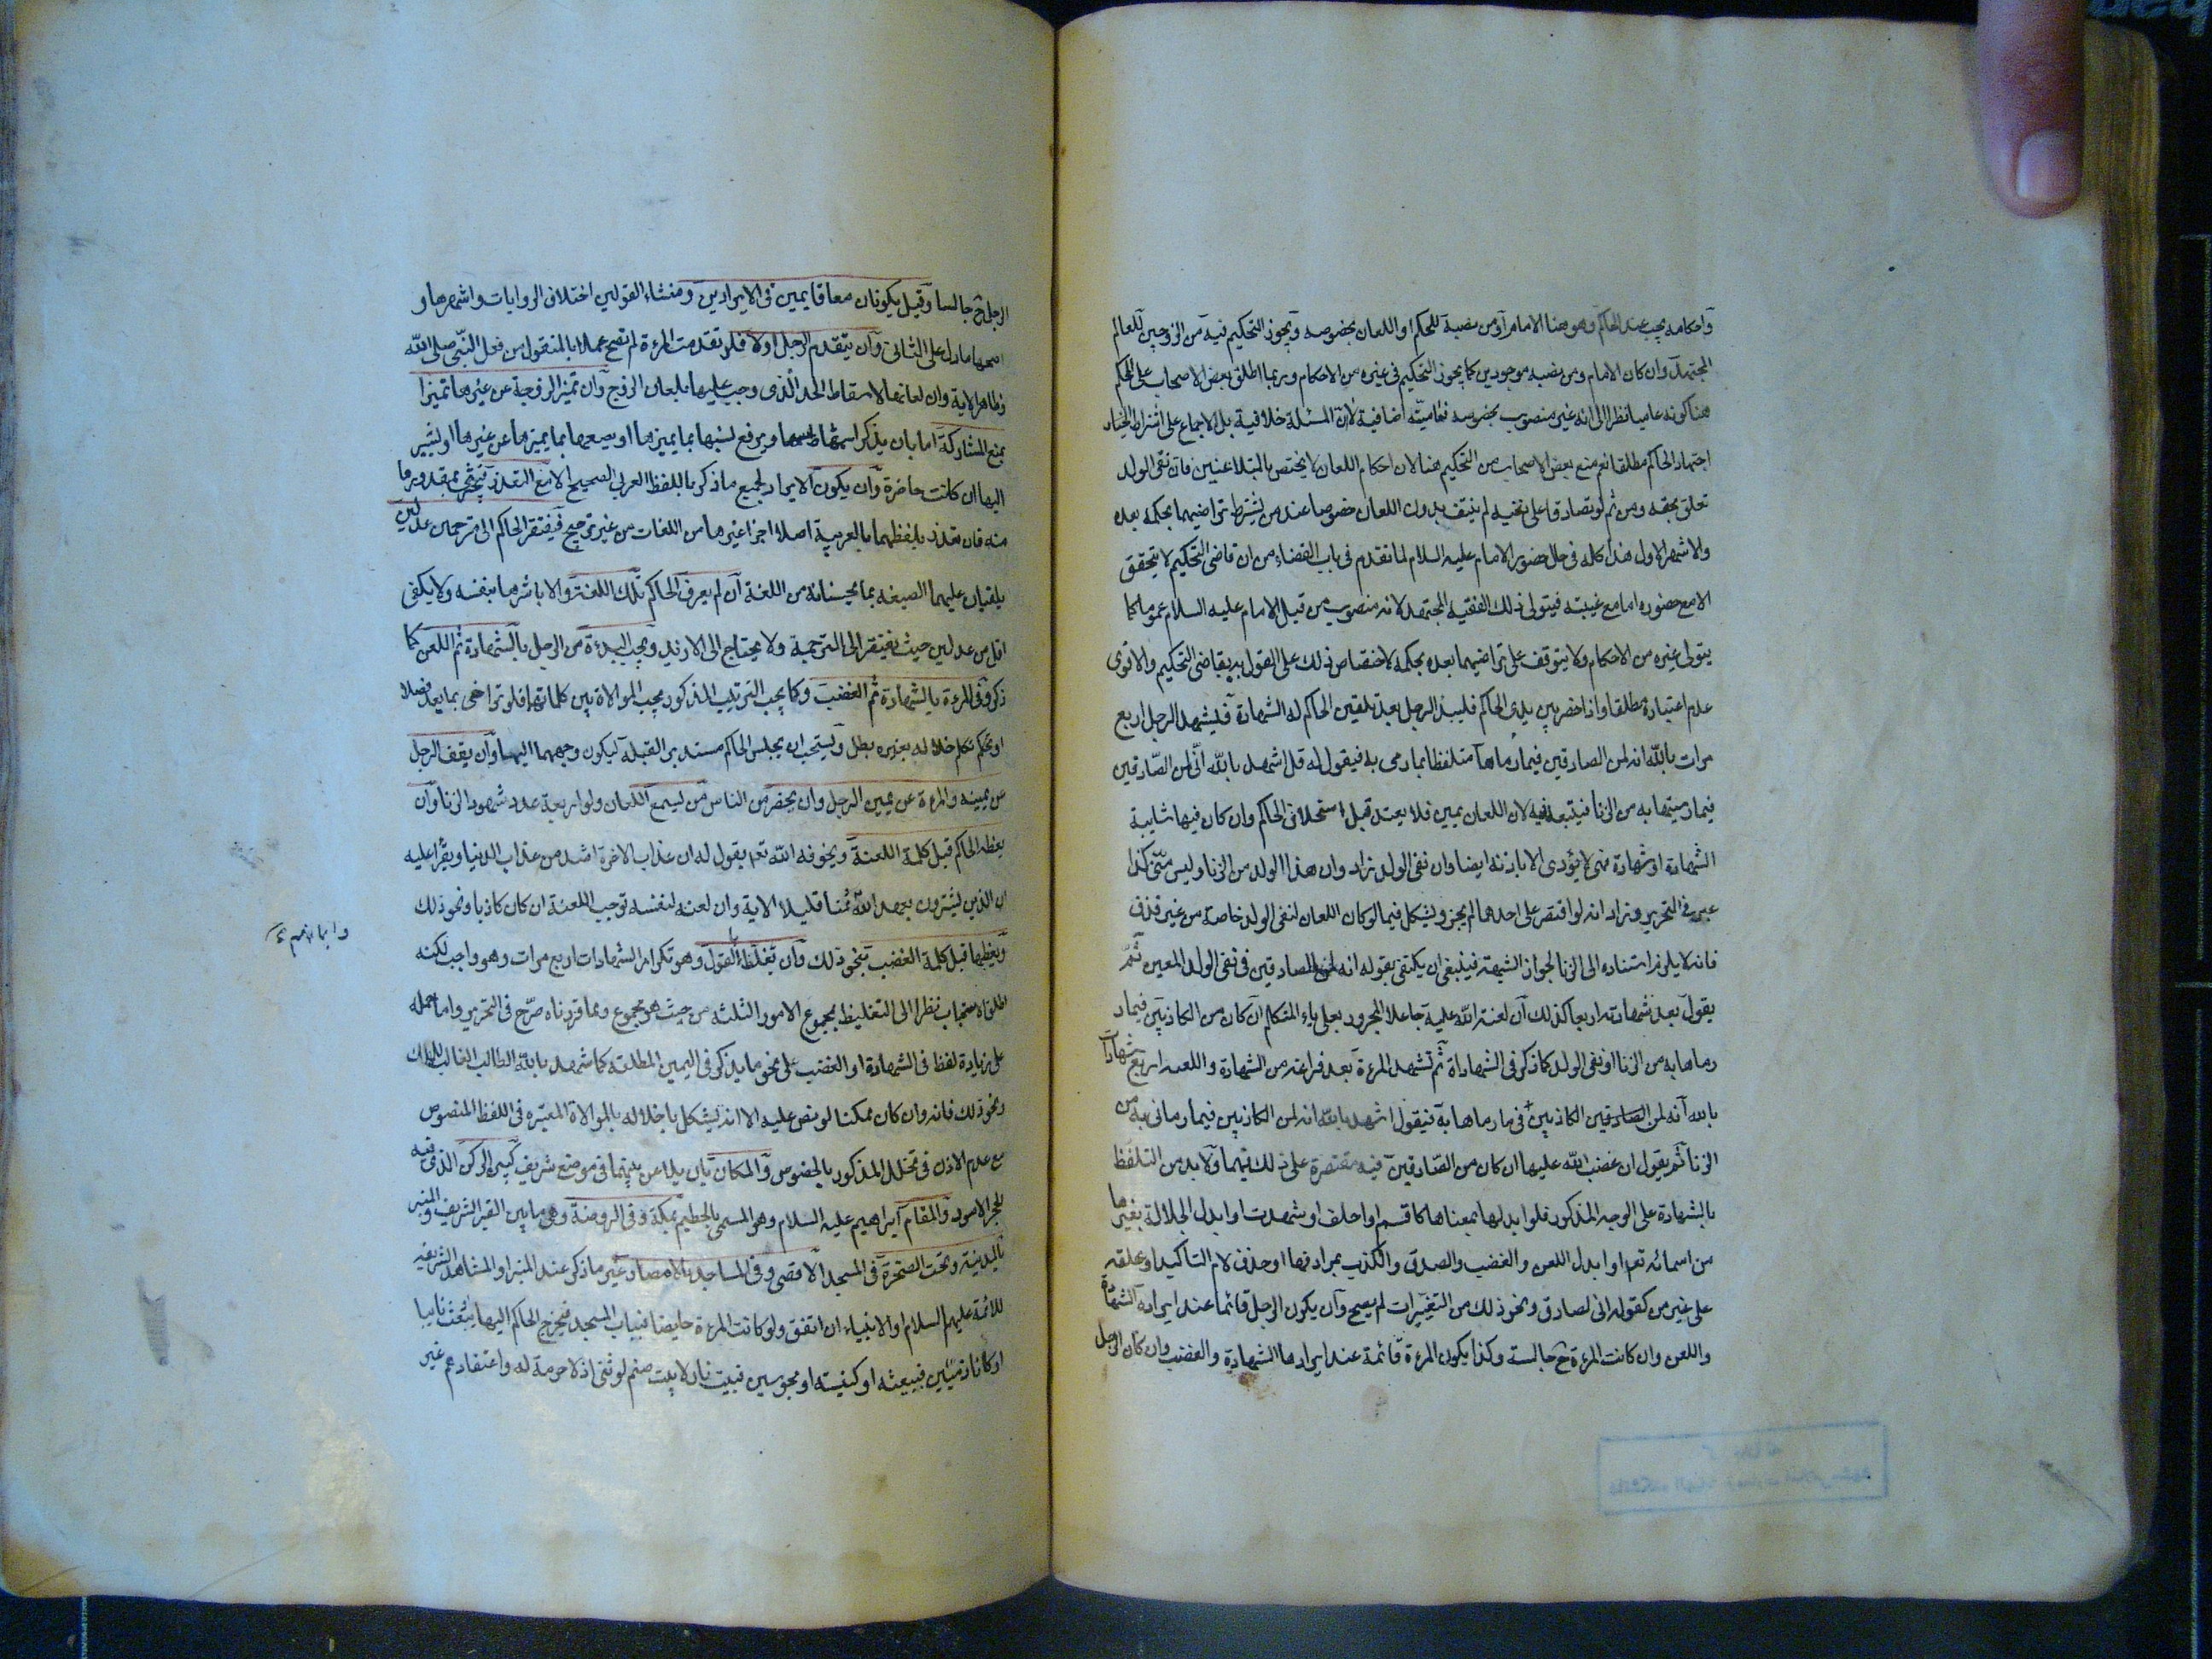 واحكامه يجب عند الحاكم وهو هنا الامام او من نصبه للحكم او اللعان بخصوصه ويجوز التحكيم فيه من الزوجين للعالم
المجتهد وان كان الامام ومن نصبه موجودين كما يجوز التحكيم فى غيره من الاحكام وربما اطلق بعض الاصحاب على المحكم
هنا كونه عاميا نظرا الى انه غير منصوب بخصوصه فعاميته اضافية لا ان المسئلة خلافية بل الاجماع على اشتراط
اجتهاد الحاكم مطلقا نعم منع بعض الاصحاب من التحكيم هنا لان احكام اللعان لا يختص بالمتلاعنين فان نفى الولد
تعلق بحقه ومن ثم لو تصادقا على نفيه لم ينتف بدون اللعان خصوصا عند من يشترط تراضيهما بحكمه بعده
والاشهر الاول هذا كله فى حال حضور الامام عليه السلام لما تقدم فى باب القضاء من ان قاضى التحكيم لا يتحقق
الا مع حضوره اما مع غيبته فيتولى ذلك الفقيه المجتهد لانه منصوب من قبل الامام عليه السلام عموما كما
يتولى غيره من الاحكام ولا يتوقف على تراضيهما بعده بحكمه لاختصاص ذلك على القول به بقاضى التحكيم والاقوى
عدم اعتباره مطلقا واذا حضر بين يدى الحاكم فليبدء الرجل بعد تلقين الحاكم له الشهادة فيشهد الرجل اربع
مرات بالله انه لمن الصادقين فيما رماها متلفظا بما رمى به فيقول له قل اشهد بالله انى لمن الصادقين
فيما رميتها به من الزنا فيتبعه فيه لان اللعان يمين فلا يعتد قبل استحلاف الحاكم وان كان فيها شايبة
الشهادة او شهادة فهى لا يؤدى الا باذنه ايضا وان نفى الولد زاد وان هذا الولد من الزنا وليس منى كذا
عبر فى التحرير وزاد انه لو اقتصر على احدهما لم يجز ويشكل فيما لو كان اللعان لنفى الولد خاصة من غير قذف
فانه لا يلزم استناده الى الزنا لجواز الشبهة فينبغى ان يكتفى بقوله انه لمن الصادقين فى نفى الولد المعين ثم
يقول بعد شهادته اربعا كذلك ان لعنة الله عليه جاعلا المجرور بعلى ياء المتكلم ان كان من الكاذبين فيما
رماها به من الزنا او نفى الولد كما ذكر فى الشهاداة ثم تشهد المرءة بعد فراغه من الشهادة واللعنه اربع شهادات
بالله انه لمن الصادقين الكاذبين فى ما رماها به فتقول اشهد بالله انه لمن الكاذبين فيما رمانى به من
الزنا ثم يقول ان غضب الله عليها ان كان من الصادقين فيه مقتصرة على ذلك فيهما ولا بد من التلفظ
بالشهادة على الوجه المذكور فلو ابدلها بمعناها كاقسم او احلف او شهدت او ابدل الجلالة بغيرها
من اسمائه تعا او ابدل اللعن والغضب والصدق والكذب بمرادفها او حذف لام التاكيد او علقه
على غير من كقوله انى لصادق ونحو ذلك من التغييرات لم يصح وان يكون الرجل قائما عند ايراده الشهادة
واللعن وان كانت المرءة ح جالسة وكذا يكون المرءة قائمة عند ايرادها الشهادة والغضب وان كان الرجل
الرجل ح جالسا وقيل يكونان معا قايمين فى الايرادين ومنشاء القولين اختلاف الروايات واشهرها و
اصحها ما دل على الثانى وان يتقدم الرجل اولا فلو تقدمت المرءة لم تصح عملا بالمنقول من فعل النبى صلى الله
وظاهر الاية وان لعانها لاسقاط الحد الذى وجب عليها بلعان الزوج وان تميز الزوجة عن غيرها تميزا
يمنع المشاركة اما بان يذكر اسمها ويرفع نسبها بما يميزها او يصفها بما يميزها عن غيرها او يشير
اليها ان كانت حاضرة وان يكون الايراد لجميع ما ذكر باللفظ العربى الصحيح الا مع التعذر
منه فان تعذر تلفظهما بالعربية اصلا اجزا غيرها من اللغات من غير ترجيح فيفتقر الحاكم الى مترجمين عدلين
يلقيان عليهما الصيغة بما يحسنانه من اللغة ان لم يعرف الحاكم تلك اللغة والا باشرها بنفسه ولا يكفى
اقل من عدلين حيث يفتقر الى الترجمة ولا يحتاج الى الازيد ويجب البدءة من الرجل بالشهادة ثم اللعن كما
ذكر وفى المرءة بالشهادة ثم الغضب وكما يجب الترتيب المذكور يجب الموالاة بين كلماتها فلو تراخى بما يعد فصلا
او تكلم خلاله بغيره بطل ويستحب ان يجلس الحاكم مستدبر القبلة ليكون وجههما اليها وان يقف الرجل
عن يمينه والمرءة عن يمين الرجل وان يحضر من الناس من يسمع اللعان ولو اربعة عدد شهود الزنا وان
يعظه الحاكم قبل كلمة اللعنة ويخوفه الله تعا يقول له ان عذاب الاخرة اشد من عذاب الدنيا ويقرا عليه
ان الذين يشترون بعهد الله ثمنا قليلا الاية وان لعنه لنفسه توجب اللعنة ان كان كاذبا ونحو ذلك
ويعظها قبل كلمة الغضب بنحو ذلك وان يغلظ بالقول وهو تكرار الشهادات اربع مرات وهو واجب لكنه
اطلق الاستحباب نظرا الى التغليظ بمجموع الامور الثلثه من حيث هو مجموع ومما قررناه صرح فى التحرير واما حمله
على زيادة لفظ فى الشهادة او الغضب على نحو ما يذكر فى اليمين المطلقه كاشهد بالله الطالب الغالب المهلك
ونحو ذلك فانه وان كان ممكنا لو نص عليه الا انه يشكل باخلاله بالموالاة المعتبره فى اللفظ المنصوص
مع عدم الاذن فى تخلل المذكور بالخصوص والمكان بان يلاعن بينهما فى موضع شريف كبين الركن الذى فيه
الحجر الاسود والمقام ابراهيم عليه السلام وهو المسمى بالحطيم بمكة وفى الروضة وهى ما بين القبر الشريف والمنبر
بالمدينة وتحت الصخرة فى المسجد الاقصى وفى المساجد بالامصار غير ما ذكر عند المنبر او المشاهد الشريفه
للائمة عليهم السلام او الانبياء ان اتفق ولو كانت المرءة حايضا فبباب المسجد فيخرج الحاكم اليها او يبعث نايبا
او كانا ذميين فببيعة او كنيسة او مجوسين فبيت نار لا بيت صنم لوثنى اذ لا حرمة له واعتقادهم غير